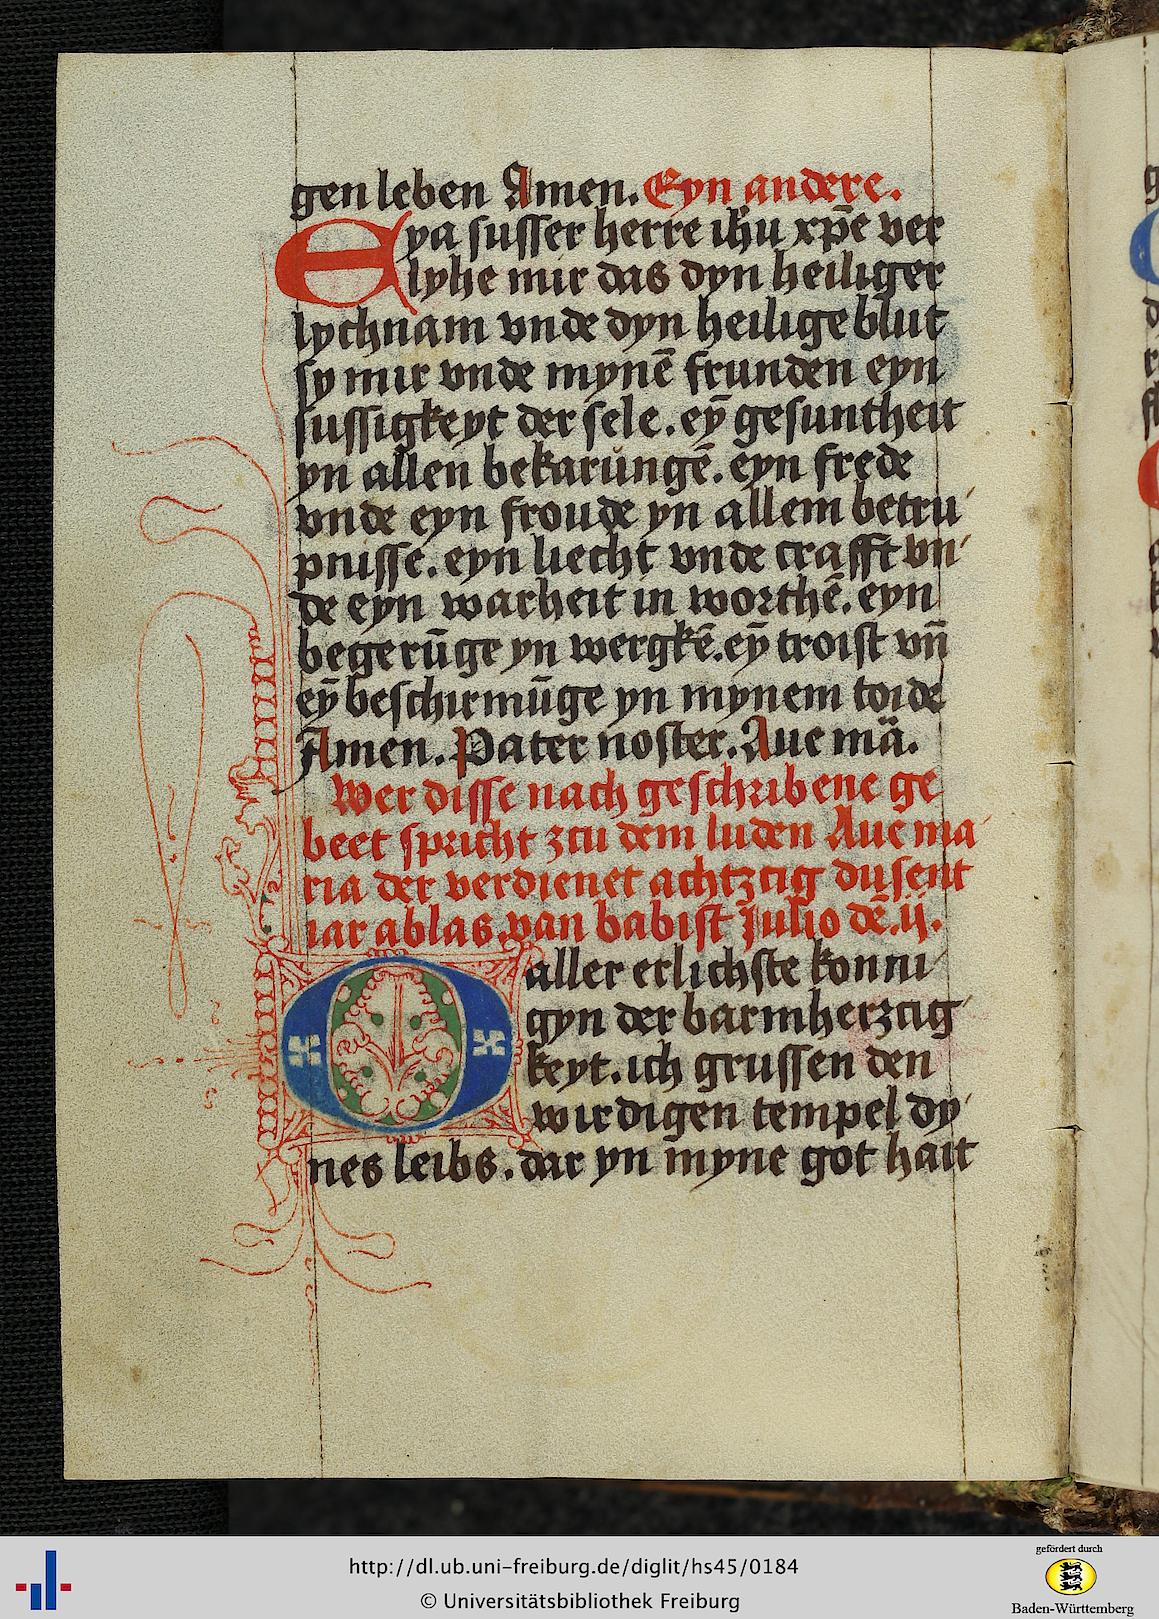 gen leben Amen. Eyn andere.
Eya susser herre ihu xpē ver
lyhe mir das dyn heiliger
lychnam vnde dyn heilige blut
sy mir vnde mynē frunden eyn
sussigkeyt der sele. eȳ gesuntheit
yn allen bekarūngē. eyn frede
vnde eyn froude yn allem betru
pnisse. eyn liecht vnde crafft vn
de eyn warheit in worthē. eyn
begerūge yn wergkē. eȳ troist vn̄
eȳ beschirmūge yn mynem toide
Amen. Pater noster. Aue mä.
Wer disse nach geschribene ge
beet spricht zcu dem luden Aue ma
ria der verdienet achtzcig dusent
iar ablas. van babist Julio dē .ij.
O aller erlichste konni
gyn der barmherzcig
keyt. ich grussen den
wirdigen tempel dy
nes leibs. dar yn myne got hait
http://dl.ub.uni-freiburg.de/diglit/hs45/0184
© Universitätsbibliothek Freiburg
gefördert durch
Baden-Württemberg